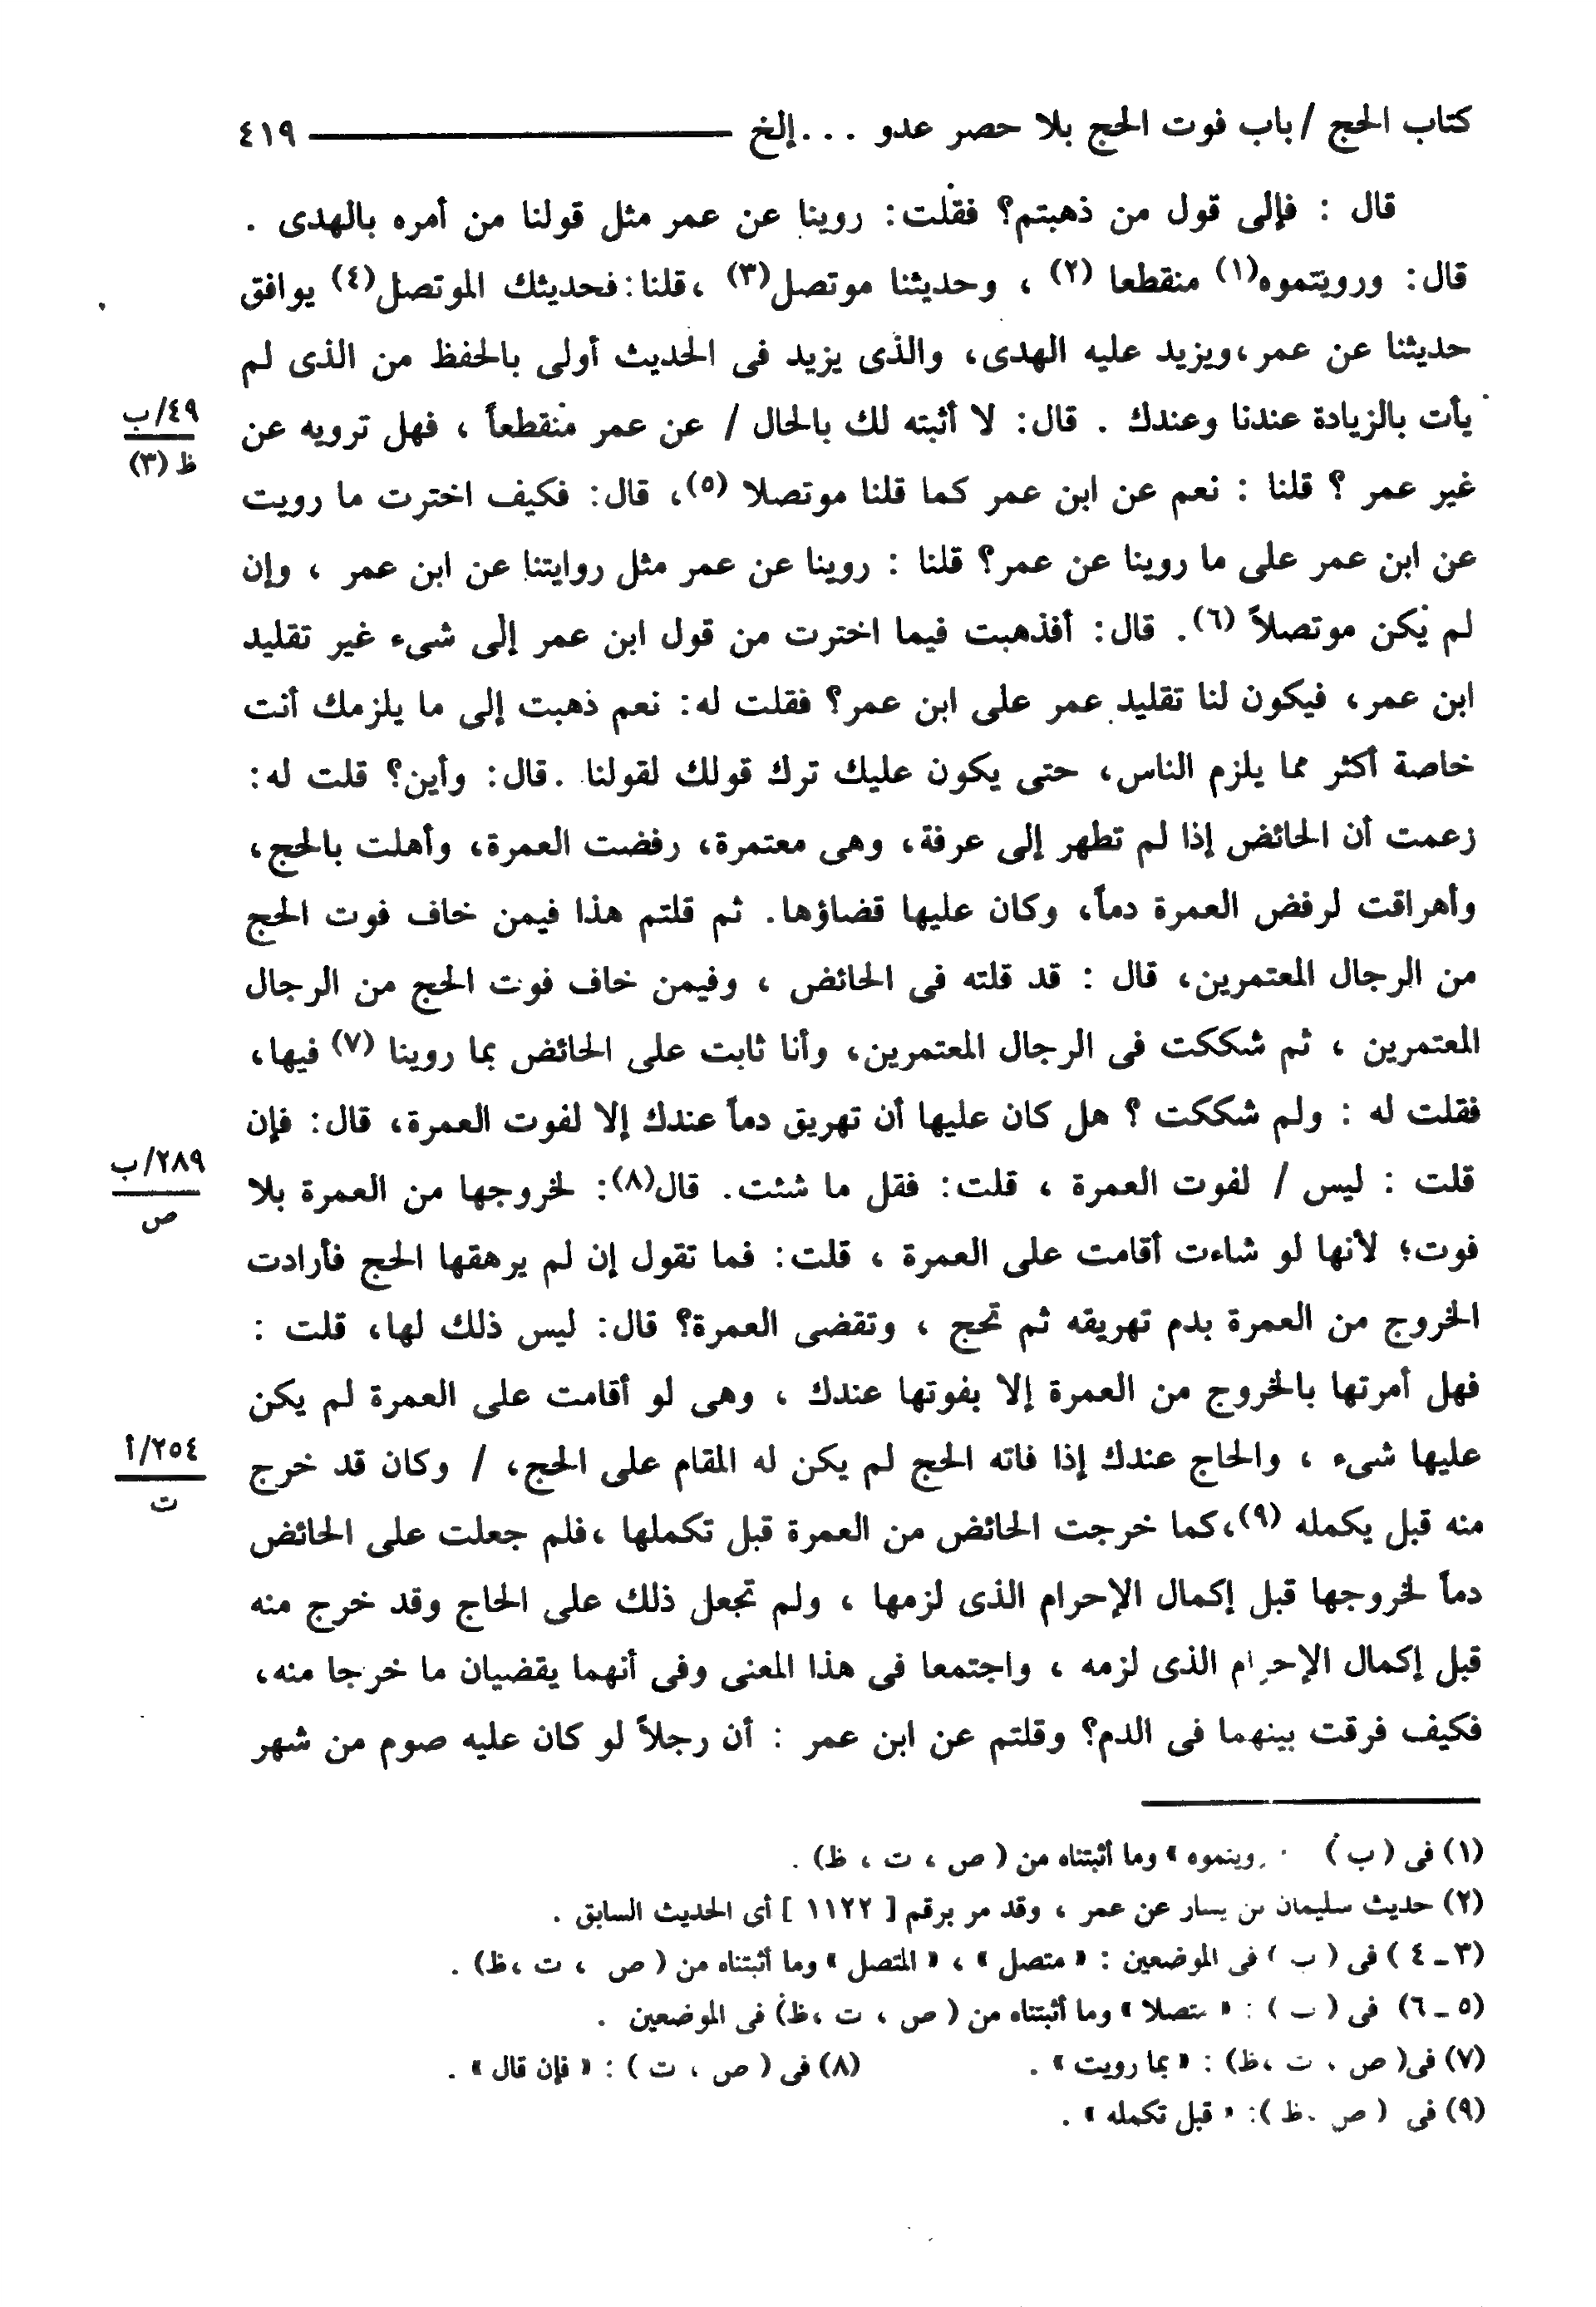 كتاب الحج / باب فوت الحج بلا حصر عدو . . . إلخ ٤١٩
قال : فإلى قول من ذهبتم؟ فقلت: روينا عن عمر مثل قولنا من أمره بالهدى .
قال: ورويتموه(١) منقطعا (٢) ، وحديثنا موتصل(٣) ، قلنا: فحديثك الموتصل(٤) يوافق
حديثنا عن عمر، ويزيد عليه الهدى، والذى يزيد فى الحديث أولى بالحفظ من الذى لم
يأت بالزيادة عندنا وعندك . قال: لا أثبته لك بالحال / عن عمر منقطعاً ، فهل ترويه عن
٤٩/ب
ظ (٣)
غير عمر ؟ قلنا : نعم عن ابن عمر كما قلنا موتصلا (٥)، قال: فكيف اخترت ما رويت
عن ابن عمر على ما روينا عن عمر؟ قلنا : روينا عن عمر مثل روايتنا عن ابن عمر ، وإن
لم يكن موتصلاً (٦). قال: أفذهبت فيما اخترت من قول ابن عمر إلى شىء غير تقليد
ابن عمر، فيكون لنا تقليد عمر على ابن عمر؟ فقلت له: نعم ذهبت إلى ما يلزمك أنت
خاصة أكثر مما يلزم الناس، حتى يكون عليك ترك قولك لقولنا . قال: وأين؟ قلت له:
زعمت أن الحائض إذا لم تطهر إلى عرفة، وهى معتمرة، رفضت العمرة، وأهلت بالحج،
وأهراقت لرفض العمرة دماً، وكان عليها قضاؤها. ثم قلتم هذا فيمن خاف فوت الحج
من الرجال المعتمرين، قال : قد قلته فى الحائض ، وفيمن خاف فوت الحج من الرجال
المعتمرين ، ثم شككت فى الرجال المعتمرين، وأنا ثابت على الحائض بما روينا (٧) فيها،
فقلت له : ولم شككت ؟ هل كان عليها أن تهريق دماً عندك إلا لفوت العمرة، قال: فإن
قلت : ليس / لفوت العمرة ، قلت: فقل ما شئت. قال(٨): لخروجها من العمرة بلا
٢٨٩/ب
ص
فوت؛ لأنها لو شاءت أقامت على العمرة ، قلت: فما تقول إن لم يرهقها الحج فأرادت
الخروج من العمرة بدم تهريقه ثم تحج ، وتقضى العمرة؟ قال: ليس ذلك لها، قلت :
فهل أمرتها بالخروج من العمرة إلا بفوتها عندك ، وهى لو أقامت على العمرة لم يكن
عليها شىء ، والحاج عندك إذا فاته الحج لم يكن له المقام على الحج، / وكان قد خرج
٢٥٤/أ
ت
منه قبل يكمله (٩)، كما خرجت الحائض من العمرة قبل تكملها ، فلم جعلت على الحائض
دماً لخروجها قبل إكمال الإحرام الذى لزمها ، ولم تجعل ذلك على الحاج وقد خرج منه
قبل إكمال الإحرام الذى لزمه ، واجتمعا فى هذا المعنى وفى أنهما يقضيان ما خرجا منه،
فكيف فرقت بينهما فى الدم؟ وقلتم عن ابن عمر : أن رجلاً لو كان عليه صوم من شهر
(١) فى ( ب ) وينموه » وما أثبتناه من ( ص ، ت ، ظ) .
(٢) حديث سليمان بن يسار عن عمر ، وقد مر برقم [ ١١٢٢ ] أى الحديث السابق .
(٣ ـ ٤ ) فى ( ب ) فى الموضعين : « متصل » ، « المتصل » وما أثبتناه من ( ص ، ت ،ظ) .
(٥ ـ ٦) فى ( ب ) : « متصلا » وما أثبتناه من ( ص ، ت ،ظ) فى الموضعين .
(٧) فى( ص ، ت ،ظ) : « بما رويت » . (٨) فى ( ص ، ت ) : « فإن قال » .
(٩) فى ( ص ، ظ ): « قبل تكمله » .